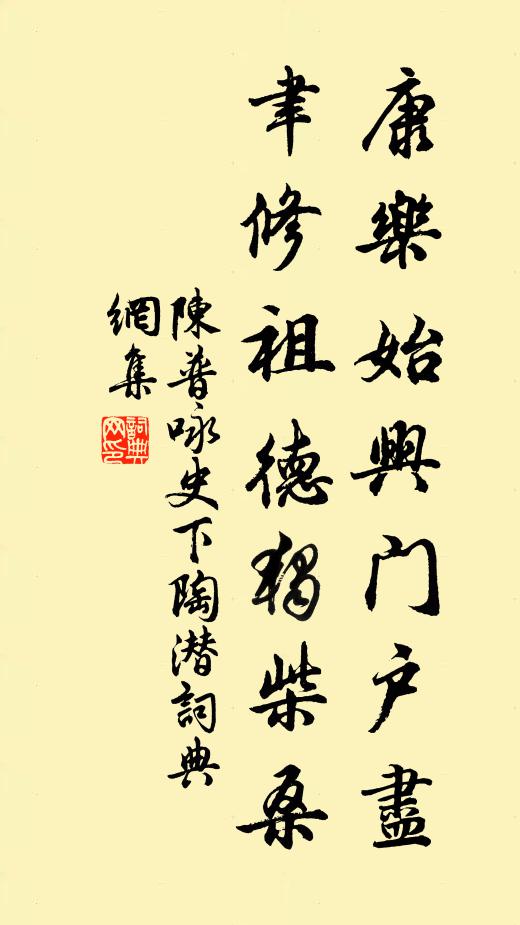 康樂始興门户盡
聿修祖德獨柴桑
陳普咏史下陶潜詞典
網集
詞典
网印